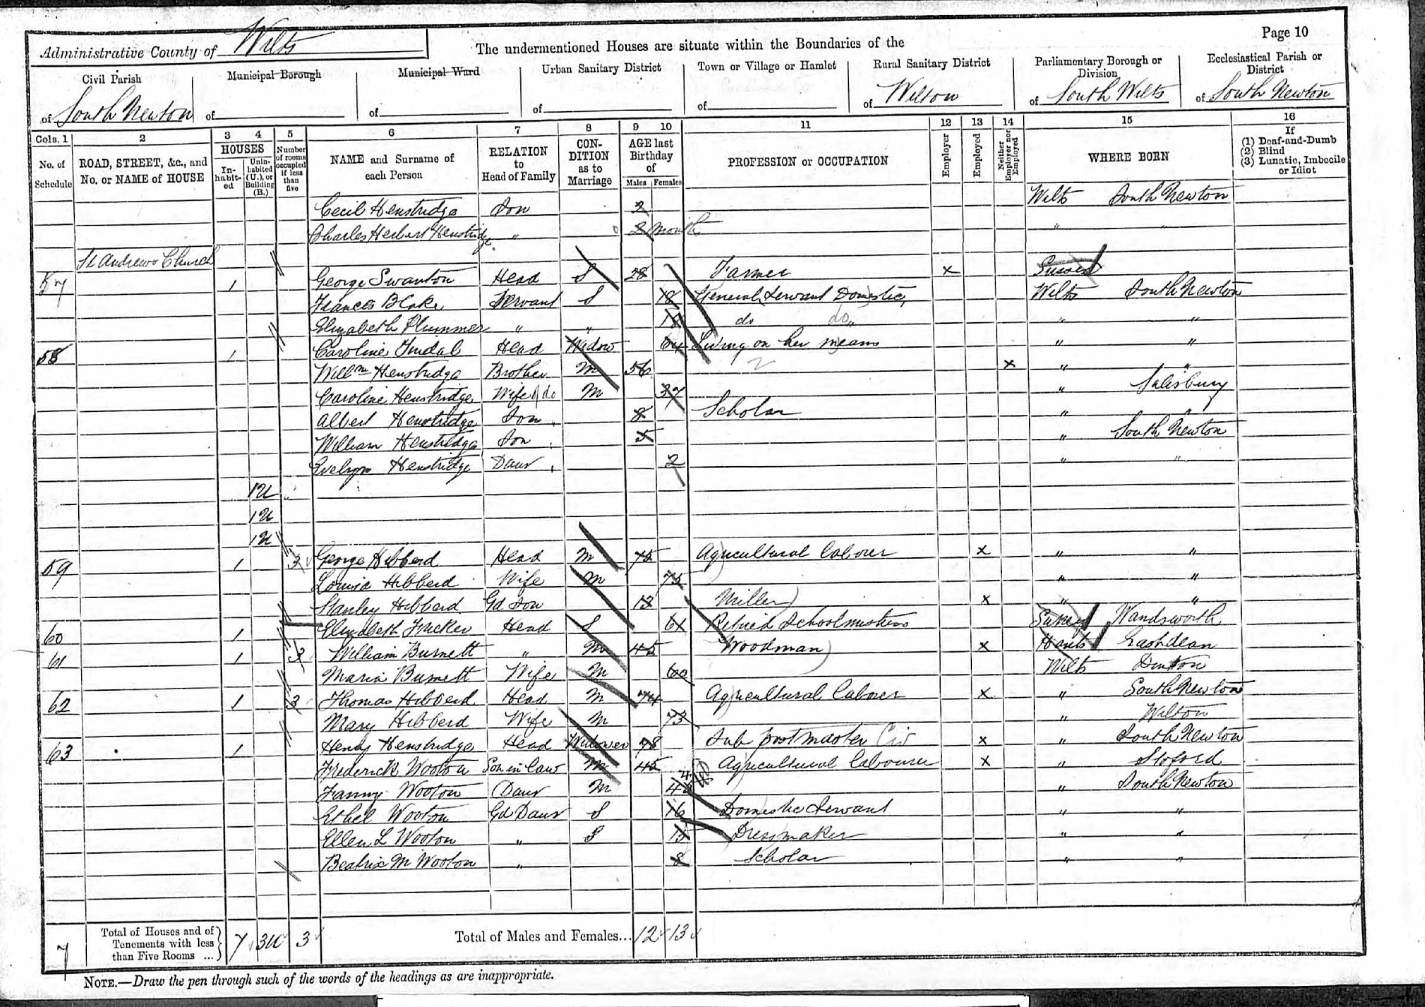 Page 10
Administrative County of Wilts
The undermentioned Houses are situate within the Boundaries of the
Civil Parish of South Newton
Municipal Borough of
Municipal Ward of
Urban Sanitary District of
Town or Village or Hamlet of
Rural Sanitary District of Wilton
Parliamentary Borough or Division of South Wilts
Ecclesiastical Parish or District of South Newton
Cols. 1 2 3 4 5 6 7 8 9 10 11 12 13 14 15 16
No. of Schedule
ROAD, STREET, &c., and No. or NAME of HOUSE
HOUSES
In-habit-ed
Unin-habited (U.), or Building (B.)
Number of rooms occupied if less than five
NAME and Surname of each Person
RELATION to Head of Family
CON-DITION as to Marriage
AGE last Birthday of
Males Females
PROFESSION or OCCUPATION
Employer
Employed
Neither Employer nor Employed
WHERE BORN
If (1) Deaf-and-Dumb (2) Blind (3) Lunatic, Imbecile or Idiot
Cecil Henstridge Son 2 Wilts South Newton
Charles Herbert Henstridge " 2 month " "
St Andrews Church
57 1 George Swanton Head S 28 Farmer x Sussex
Frances Blake Servant S 18 General Servant Domestic Wilts South Newton
Elizabeth Plummer " " do do " "
58 1 Caroline Head Widow 64 Living on her means " "
Willm Henstridge Brother M 56 x " "
Caroline Henstridge Wife do M 37 " Salisbury
Albert Henstridge Son 8 Scholar " "
William Henstridge Son 5 " South Newton
Evelyn Henstridge Daur 2 " "
1U
1U
1U
59 1 3 George Hibberd Head M 75 Agricultural Labourer x " "
Louisa Hibberd Wife M 75 " "
Stanley Hibberd Gd Son 18 Miller x " "
60 1 Elizabeth Fricker Head S 61 Retired Schoolmistress Surrey Wandsworth
61 1 3 William Burnett " M 45 Woodman x Hants Eastdean
Maria Burnett Wife M 60 Wilts Dinton
62 1 3 Thomas Hibberd Head M 74 Agricultural Labourer x " South Newton
Mary Hibberd Wife M 73 " Wilton
63 1 Henry Henstridge Head Widower 78 Sub postmaster x " South Newton
Frederick Wooton Son in Law M 45 Agricultural Labourer x " Stoford
Fanny Wooton Daur M " South Newton
Ethel Wooton Gd Daur S 16 Domestic Servant " "
Ellen L Wooton " S 15 Dressmaker " "
Beatrice M Wooton " 8 Scholar " "
7 Total of Houses and of Tenements with less than Five Rooms ... 7 3U 3
Total of Males and Females... 12 13
NOTE.—Draw the pen through such of the words of the headings as are inappropriate.